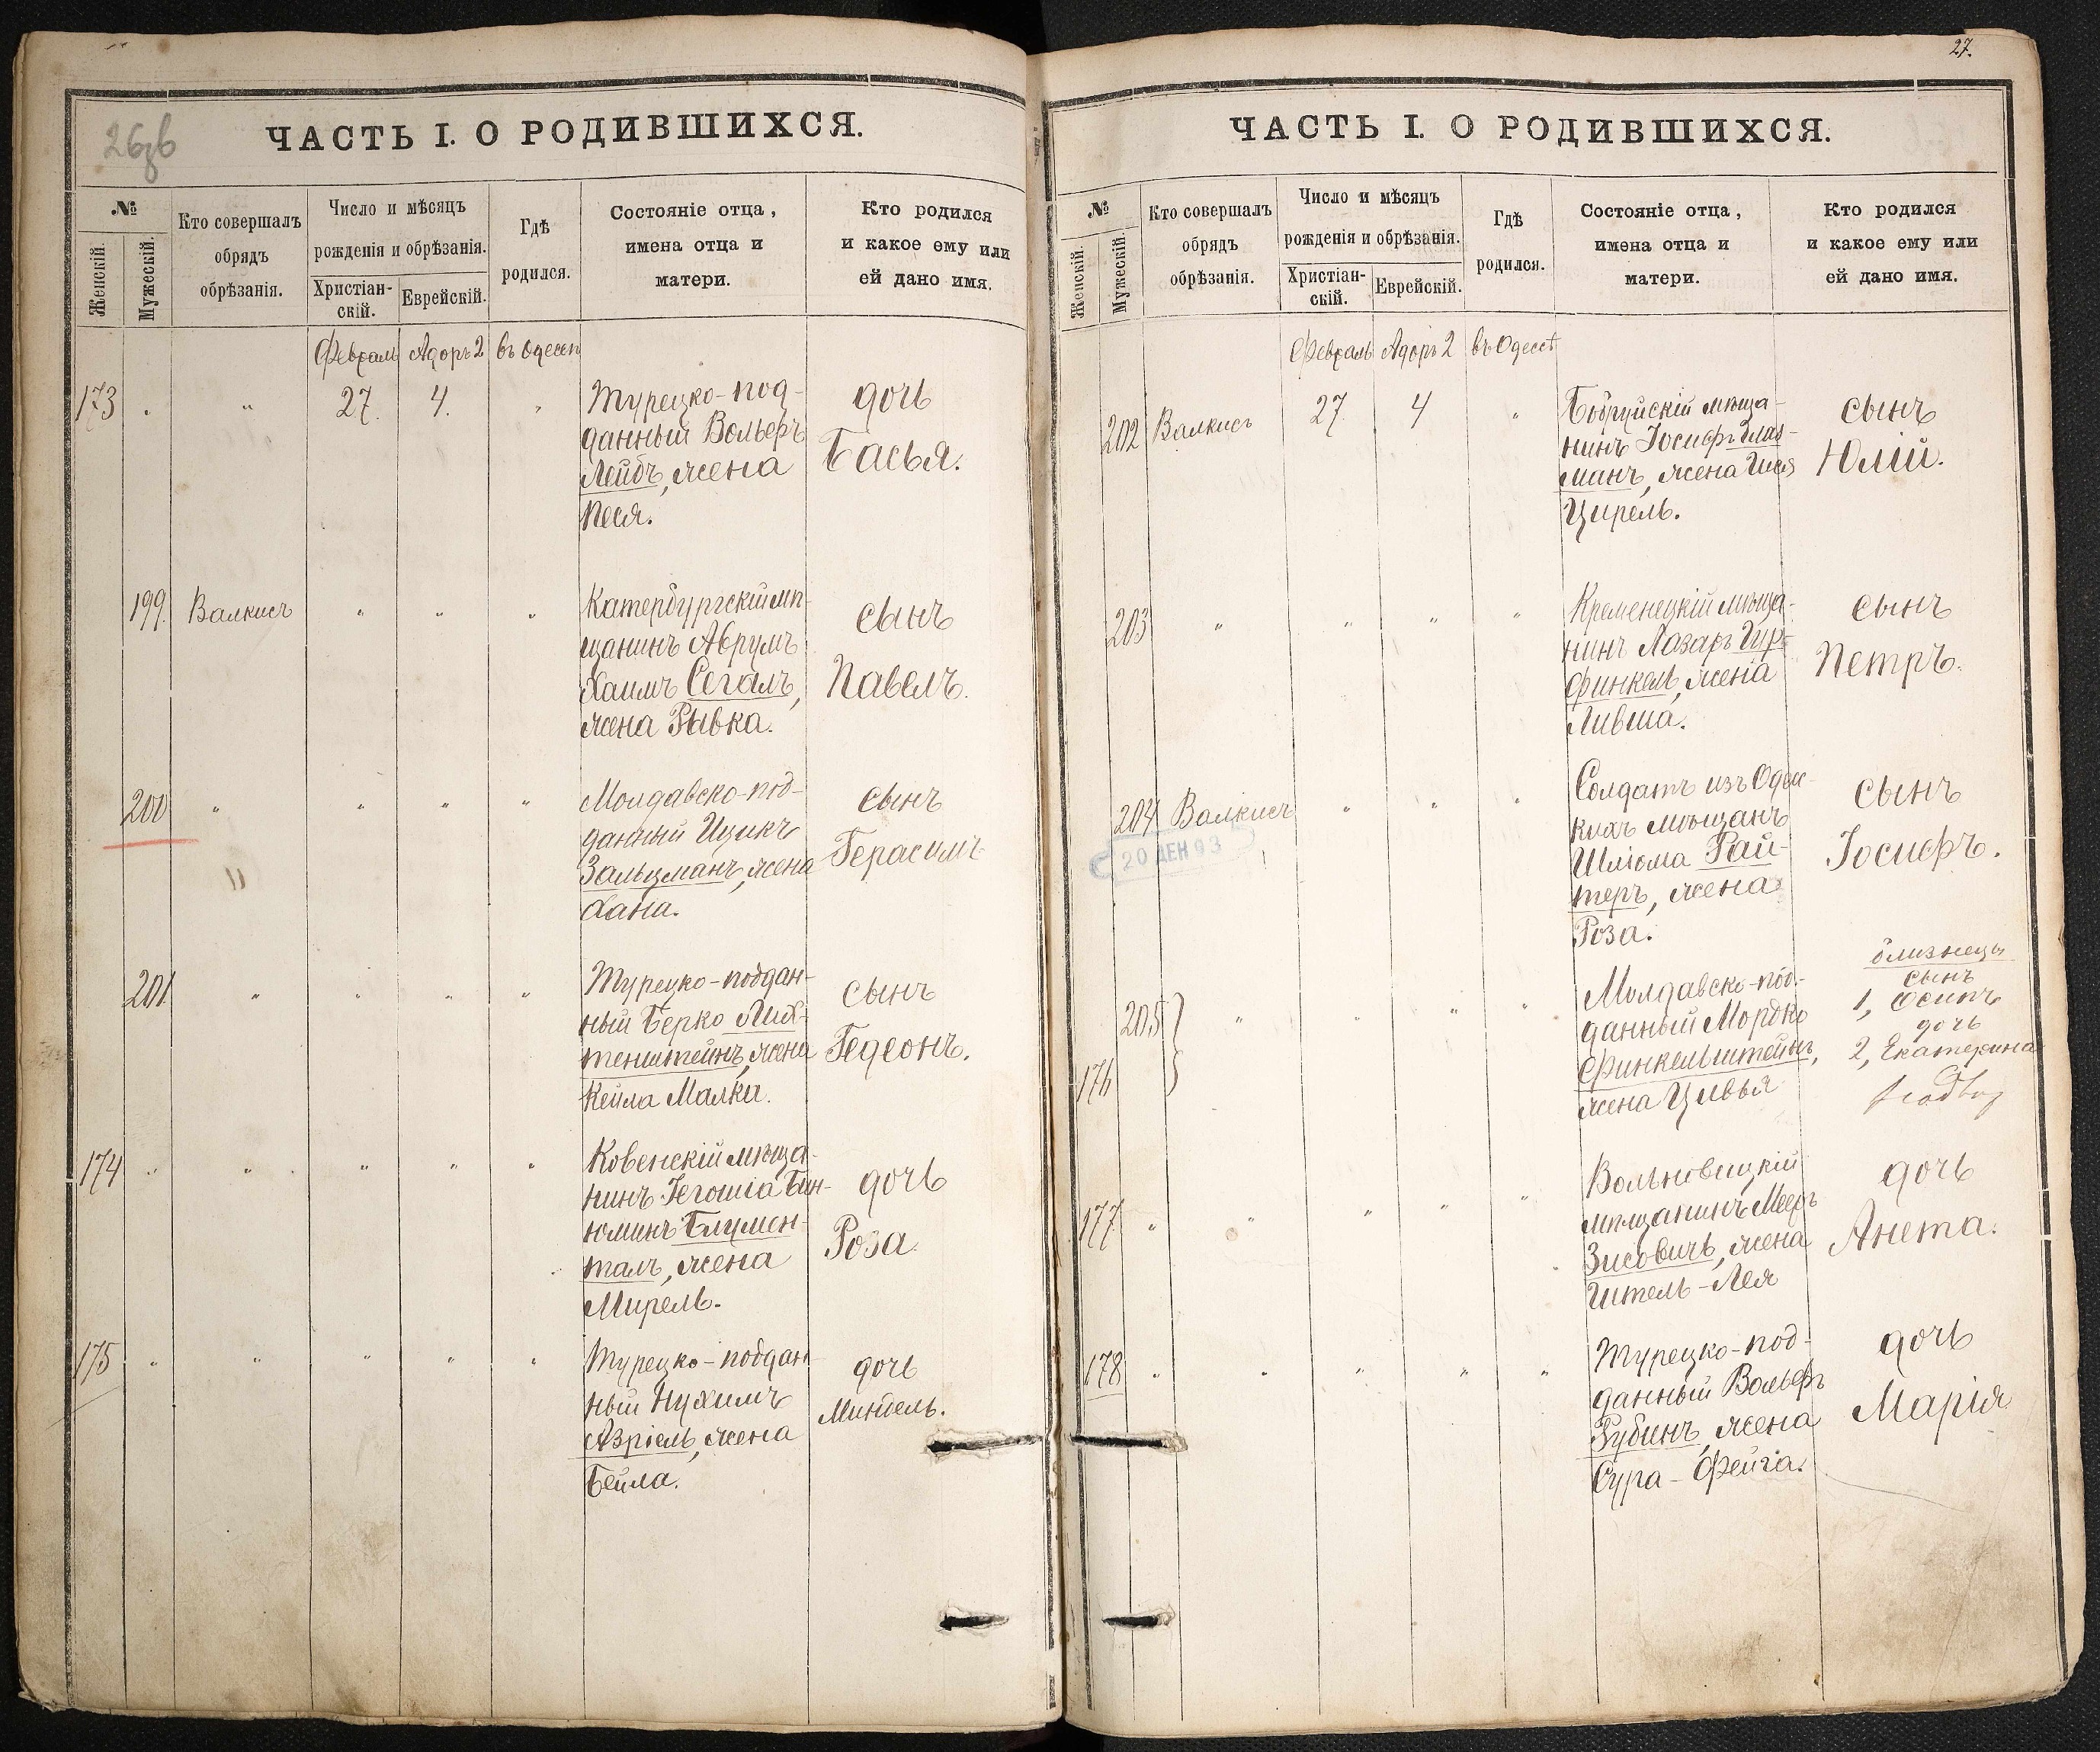 26об
ЧАСТЬ I. О РОДИВШИХСЯ.
№
Женскій.
Мужескій.
Кто совершалъ
обрядъ
обрѣзанія.
Число и мѣсяцъ
рожденія и обрѣзанія.
Христіан-
скій.
Еврейскій.
Гдѣ
родился.
Состояніе отца,
имена отца и
матери.
Кто родился
и какое ему или
ей дано имя.
Февраль Адоръ 2 въ Одессѣ
173 . " 27. 4. "
Турецко-под-
данный Вольфъ
Лейбъ, жена
Песя.
дочь
Басья.
199. Валкисъ " " "
Катербургскій мѣ-
щанинъ Аврумъ
Хаимъ Сегалъ,
жена Рывка.
сынъ
Павелъ.
200 " " " "
Молдавско-под-
данный Ицикъ
Зальцманъ, жена
Хана.
сынъ
Герасимъ
201. " " " "
Турецко-поддан-
ный Берко Лих-
тенштейнъ, жена
Кейла Малка.
сынъ
Гедеонъ.
174 " " " " "
Ковенскій мѣща-
нинъ Іегошіа Бин-
юминъ Блумен-
талъ, жена
Мирель.
дочь
Роза.
175 " " " " "
Турецко-поддан-
ный Нухимъ
Азріель, жена
Бейла.
дочь
Миндель.
27.
ЧАСТЬ I. О РОДИВШИХСЯ.
№
Женскій.
Мужескій.
Кто совершалъ
обрядъ
обрѣзанія.
Число и мѣсяцъ
рожденія и обрѣзанія.
Христіан-
скій.
Еврейскій.
Гдѣ
родился.
Состояніе отца,
имена отца и
матери.
Кто родился
и какое ему или
ей дано имя.
Февраль Адоръ 2 въ Одессѣ
202 Валкисъ 27. 4 "
Бобруйскій мѣща-
нинъ Іосифъ
манъ, жена
Цирель.
сынъ
Юлій.
203 " " " "
Кременецкій мѣща-
нинъ Лазарь Гур-
финкель, жена
Ливша.
сынъ
Петръ.
204 Валкисъ " " "
20 ДЕН 93
Солдатъ изъ Одес-
кихъ мѣщанъ
Шліома Рай-
теръ, жена
Роза.
сынъ
Іосифъ.
205 } " " " "
176
Молдавско-под-
данный Мордко
Финкельштейнъ,
жена Цивья
близнецы
сынъ
1, Осипъ
дочь
2, Екатерина
177 " " " " "
мѣщанинъ Мееръ
Зисовичъ, жена
Гитель-Лея
дочь
Анета.
178 " " " " "
Турецко-под-
данный Вольфъ
Рубинъ, жена
Сура-Фейга.
дочь
Марія